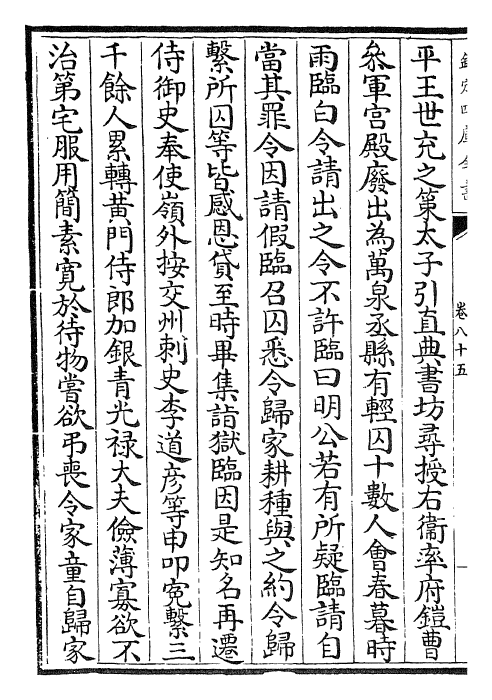 欽定四庫全書
卷八十五
平王世充之策太子引直典書坊尋授右衞率府鎧曹
叅軍宫殿廢出為萬泉丞縣有輕囚十數人會春暮時
雨臨白令請出之令不許臨曰明公若有所疑臨請自
當其罪令因請假臨召囚悉令歸家耕種與之約令歸
繫所囚等皆感恩貸至時畢集詣獄臨因是知名再遷
侍御史奉使嶺外按交州刺史李道彦等申叩寃繫三
千餘人累轉黄門侍郎加銀青光禄大夫儉薄寡欲不
治第宅服用簡素寛於待物嘗欲弔喪令家童自歸家